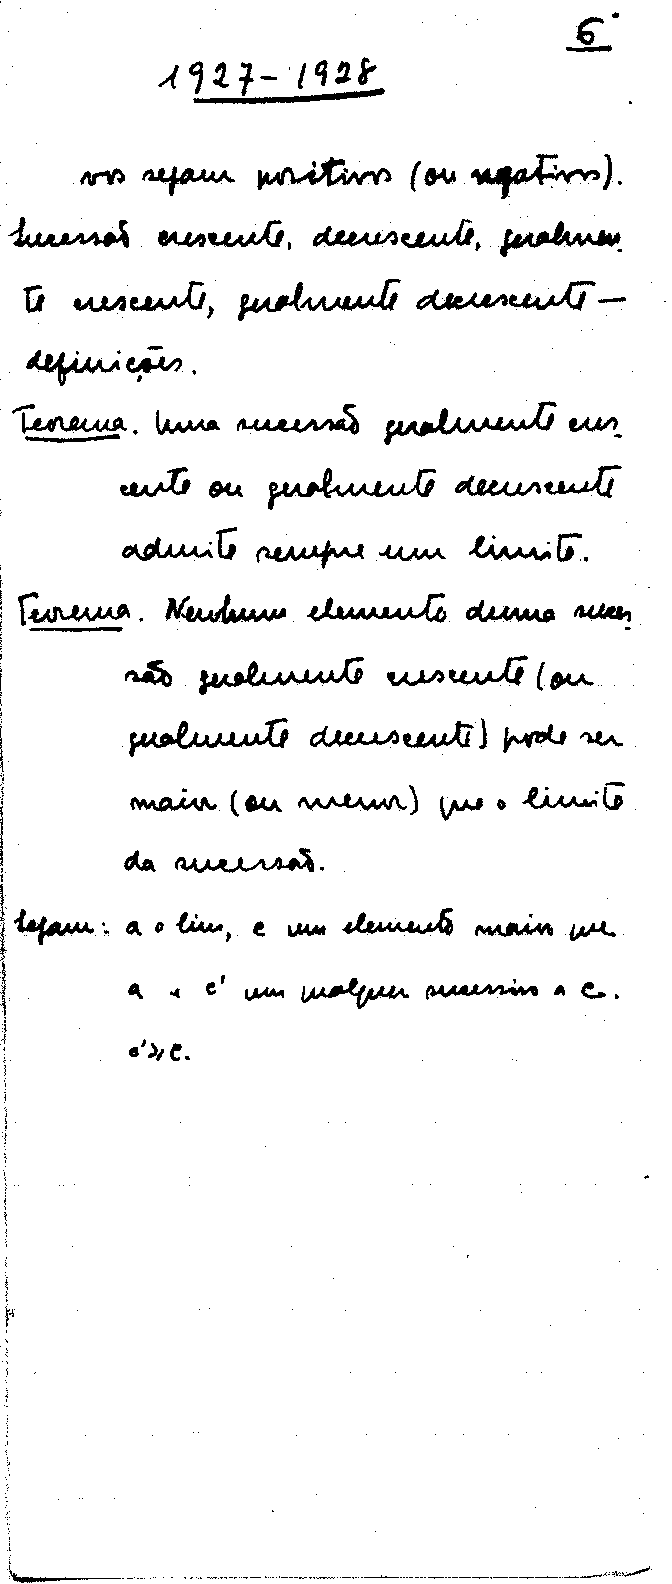 6
1927-1928
vos sejam positivos (ou negativos).
Sucessão crescente, decrescente, geralmen
te crescente, geralmente decrescente —
definições.
Teorema. Uma sucessão geralmente cres
cente ou geralmente decrescente
admite sempre um limite.
Teorema. Nenhum elemento duma suces
são geralmente crescente (ou
geralmente decrescente) pode ser
maior (ou menor) que o limite
da sucessão.
Sejam: a o lim, c um elemento maior que
a e c' um qualquer sucessivo a c.
c'≥c.